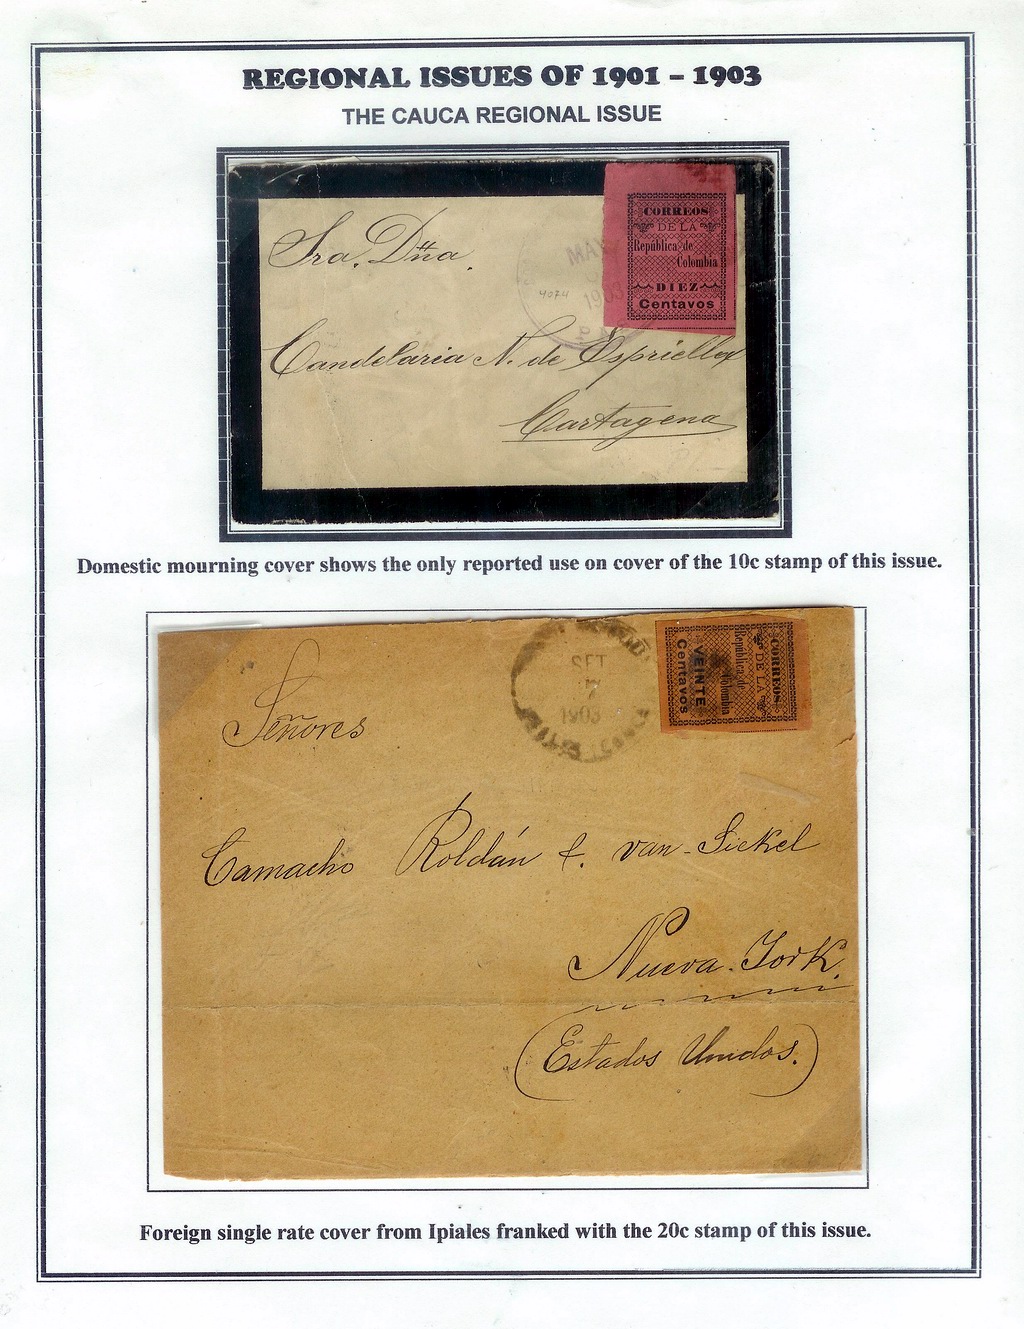 REGIONAL ISSUES OF 1901 – 1903
THE CAUCA REGIONAL ISSUE
CORREOS
DE LA
República de
Colombia
DIEZ
Centavos
MAY
1903
4074
Sra. Dña.
Candelaria N. de Espriella
Cartagena
Domestic mourning cover shows the only reported use on cover of the 10c stamp of this issue.
CORREOS
DE LA
República de
Colombia
VEINTE
Centavos
SET
7
1903
Señores
Camacho Roldán &. van-Sickel
Nueva-York.
(Estados Unidos.)
Foreign single rate cover from Ipiales franked with the 20c stamp of this issue.